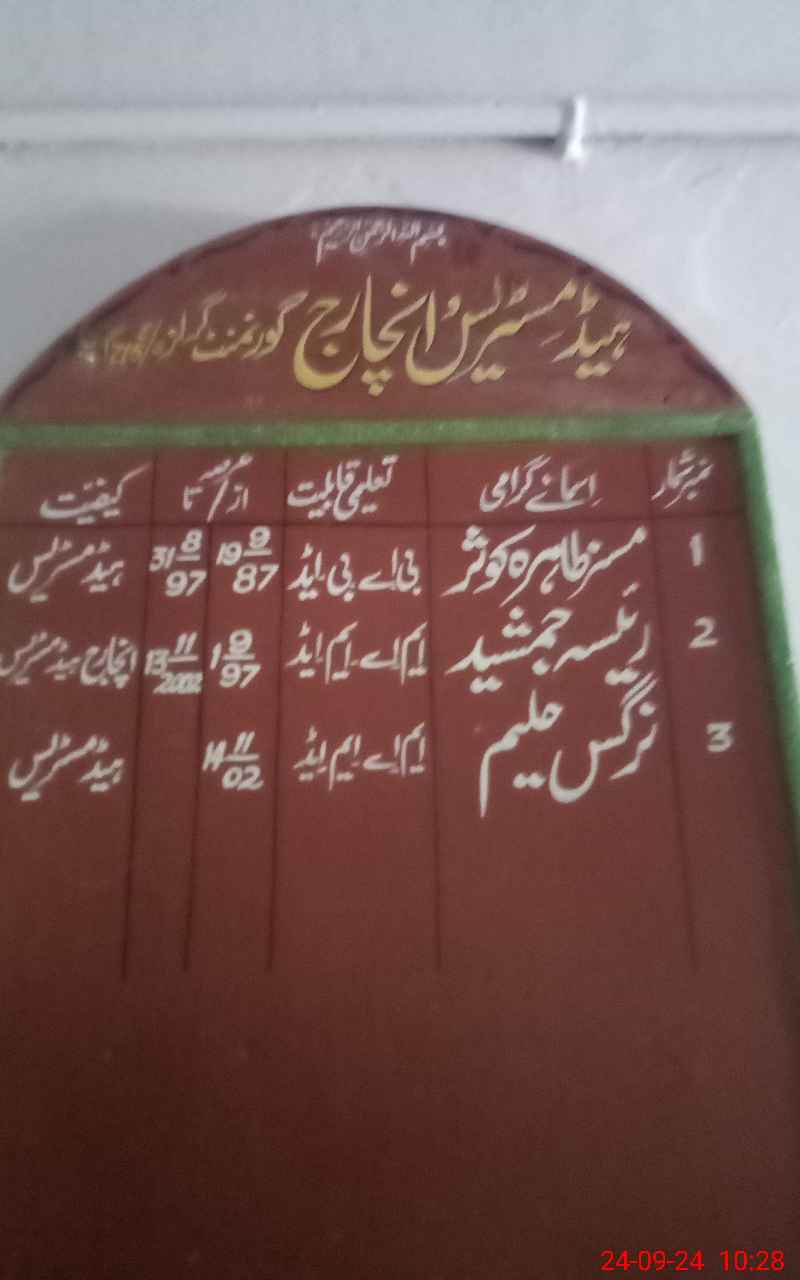 بسم اللہ الرحمن الرحیم
ہیڈ مسٹریس / انچارج گورنمنٹ گرلز
نمبر شمار اسمائے گرامی تعلیمی قابلیت عرصہ از / تا کیفیت
1 مسز طاہرہ کوثر بی اے بی ایڈ 19 9/87 31 8/97 ہیڈ مسٹریس
2 رئیسہ جمشید ایم اے ایم ایڈ 1 9/97 13 11/2002 انچارج ہیڈ مسٹریس
3 نرگس حلیم ایم اے ایم ایڈ 14 11/02 ہیڈ مسٹریس
24-09-24 10:28